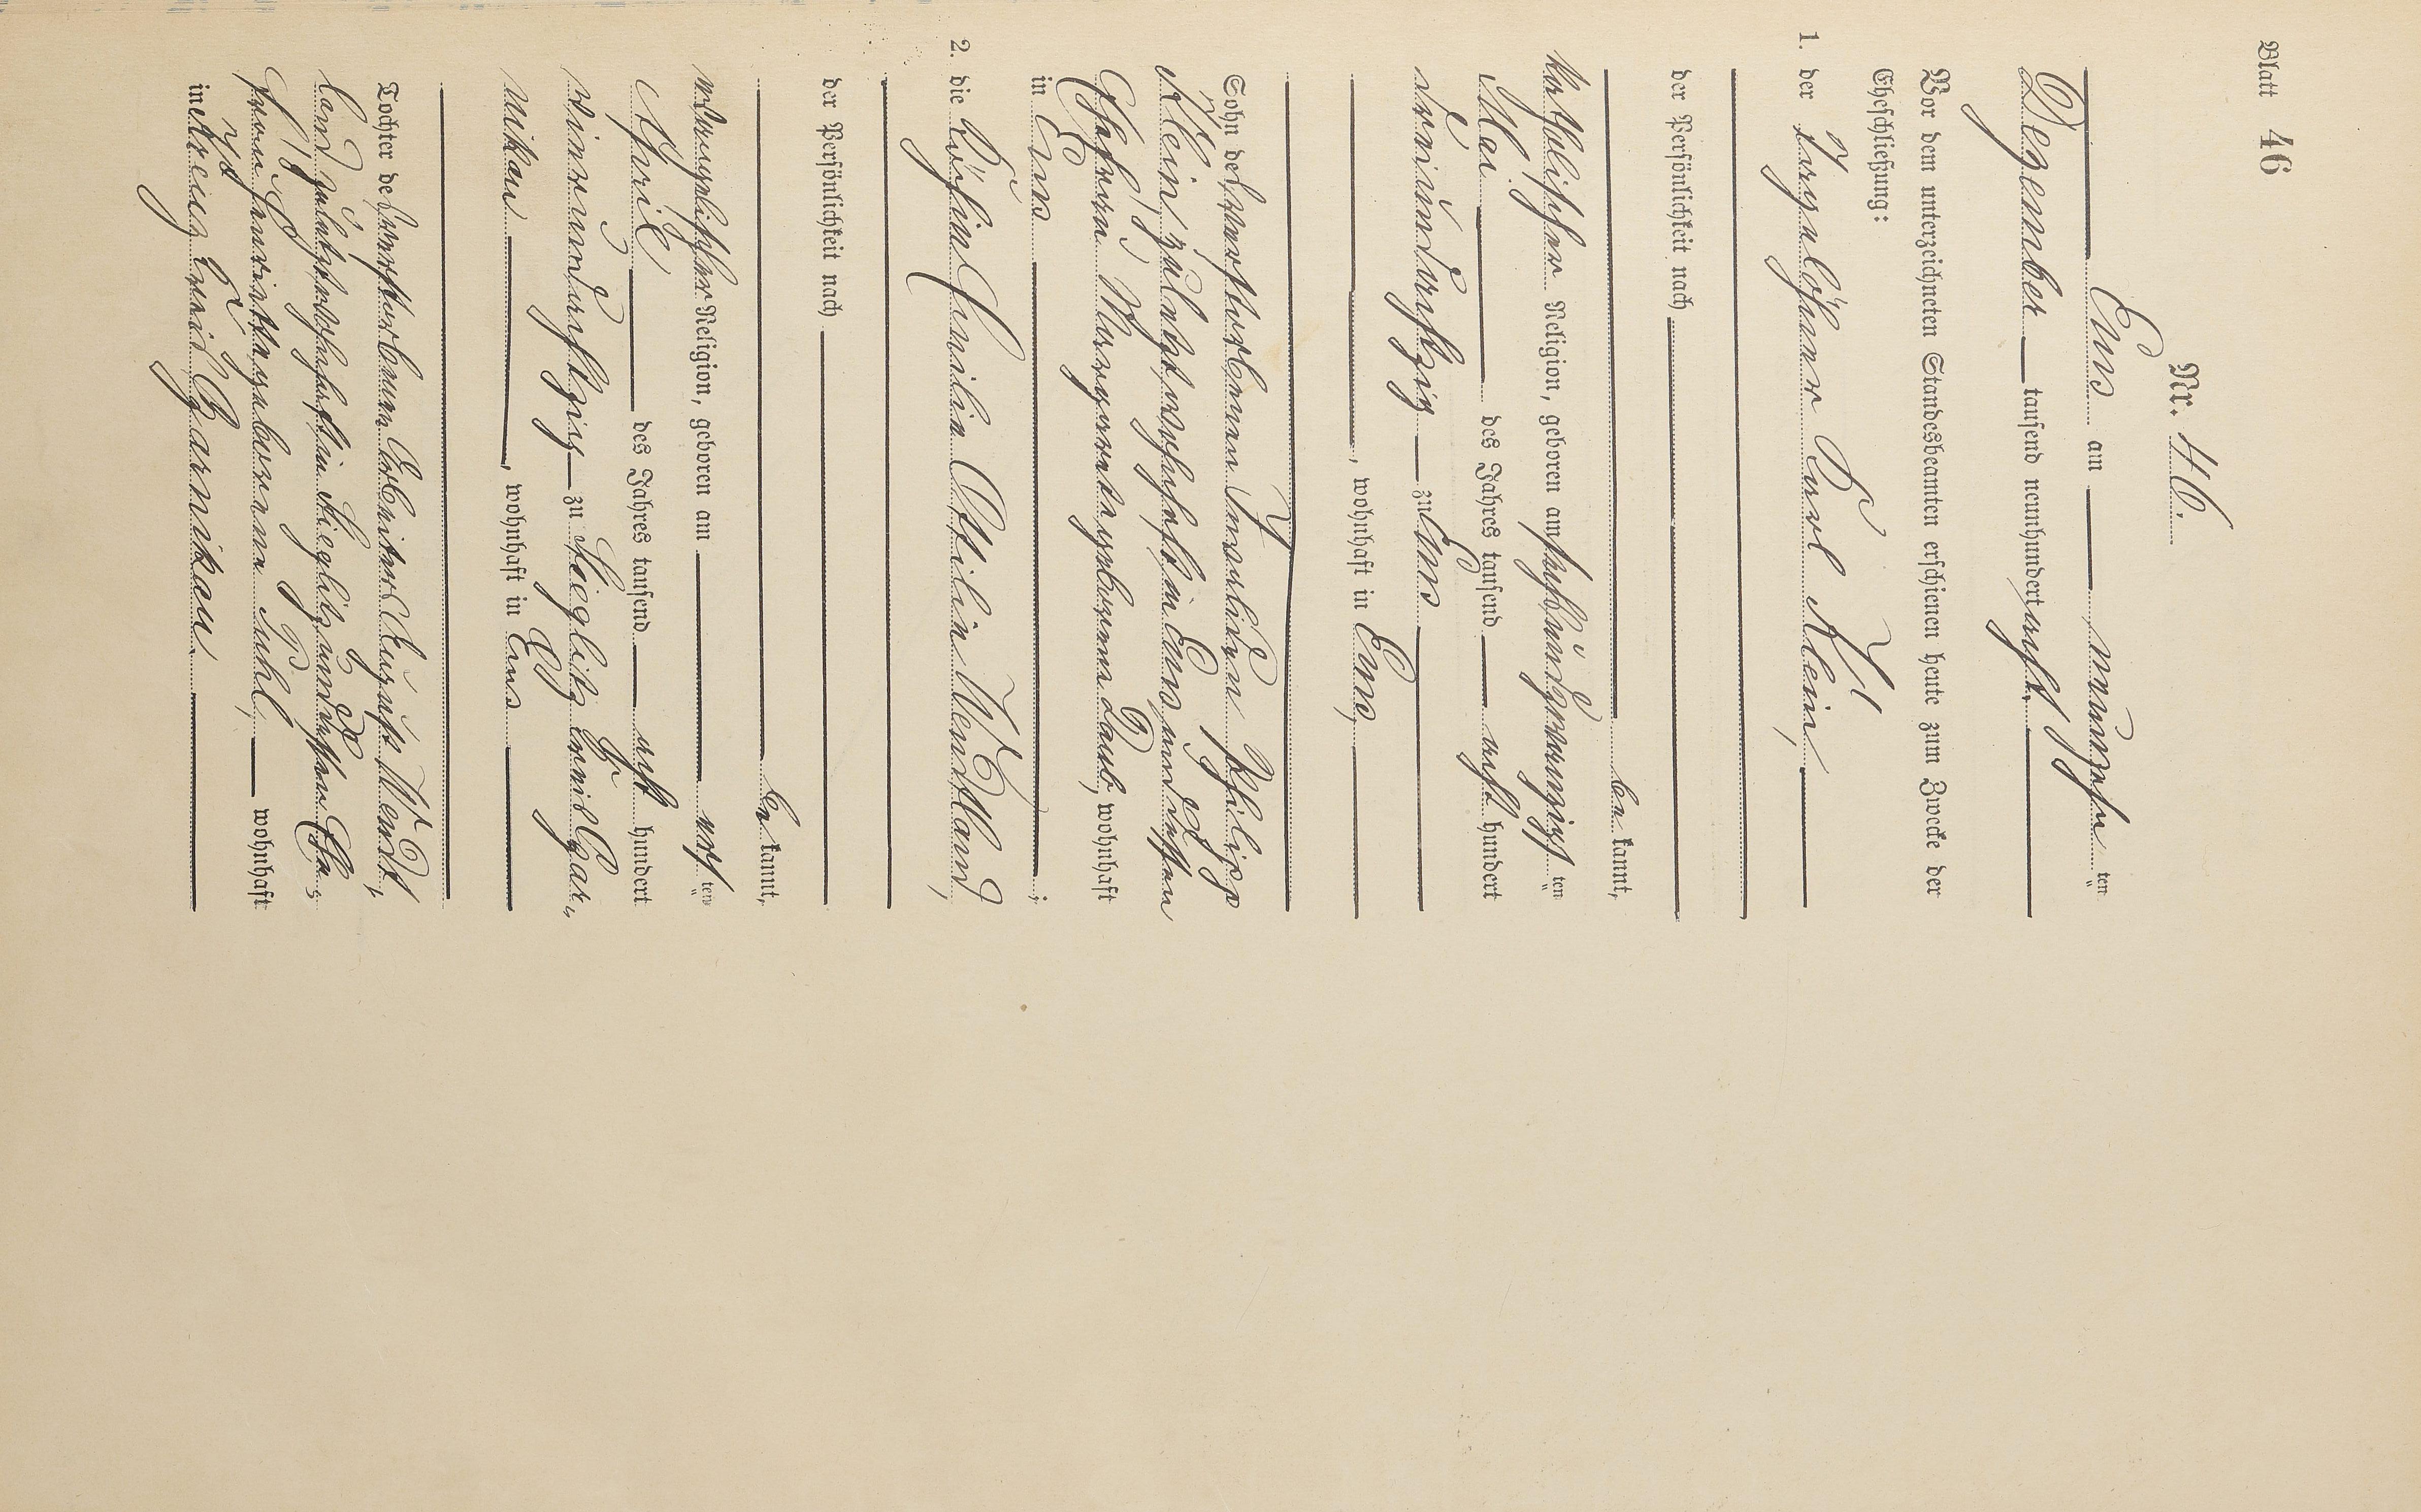 Blatt 46
Nr. 46.
Ems am neunzehnten
Dezember tausend neunhundert acht
Vor dem unterzeichneten Standesbeamten erschienen heute zum Zwecke der
Eheschließung:
1. der Tagelöhner Karl Klein,
der Persönlichkeit nach
bekannt,
katholischer Religion, geboren am sechsundzwanzigsten
Mai des Jahres tausend acht hundert
dreiundachtzig zu Ems
, wohnhaft in Ems,
Sohn des verstorbenen Invaliden Philipp
Klein, zuletzt wohnhaft in Ems und dessen
Ehefrau Margareta geborene Laub, wohnhaft
in Ems ;
2. die Köchin Emilie Ottilie Wendland,
der Persönlichkeit nach
bekannt,
evangelischer Religion, geboren am achten
April des Jahres tausend acht hundert
vierundachtzig zu Stieglitz Kreis Czar-
nikau , wohnhaft in Ems
Tochter des verstorbenen Arbeiters August Wendt,
land zuletzt wohnhaft in Stieglitz und dessen Ehe-
frau Henriette, geborene Puhl, wohnhaft
in Kreis Czarnikau.